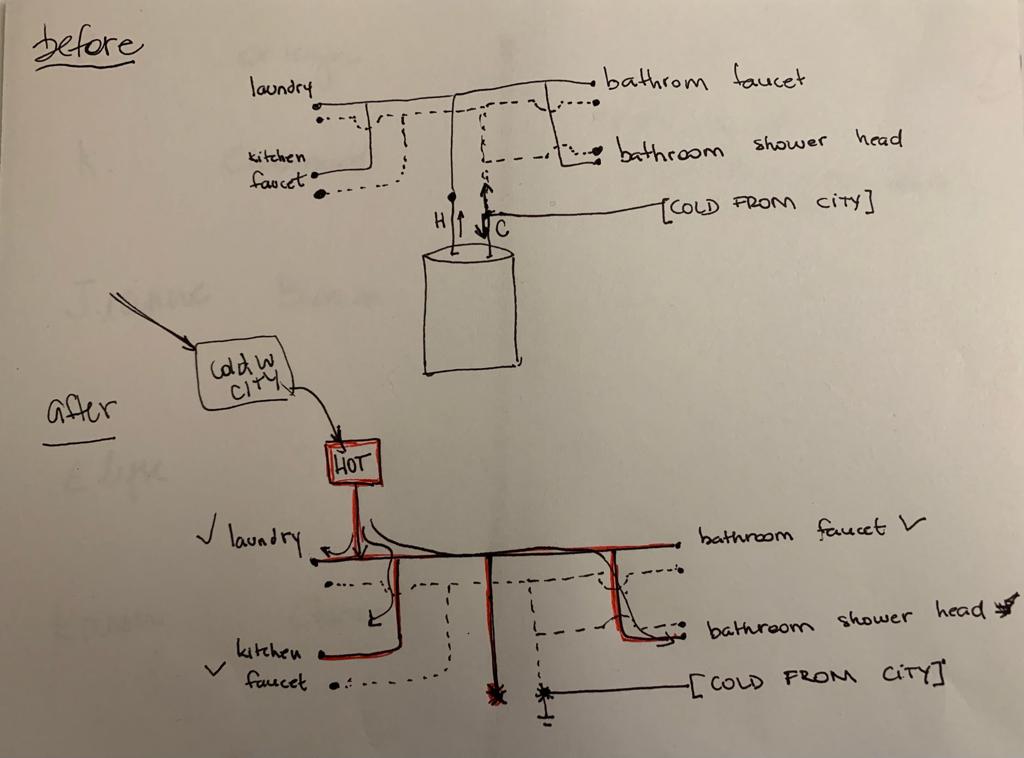 before
laundry
bathrom faucet
kitchen
faucet
bathroom shower head
[COLD FROM CITY]
H
C
Cold W
CITY
after
HOT
laundry
bathroom faucet
kitchen
faucet
bathroom shower head
[COLD FROM CITY]